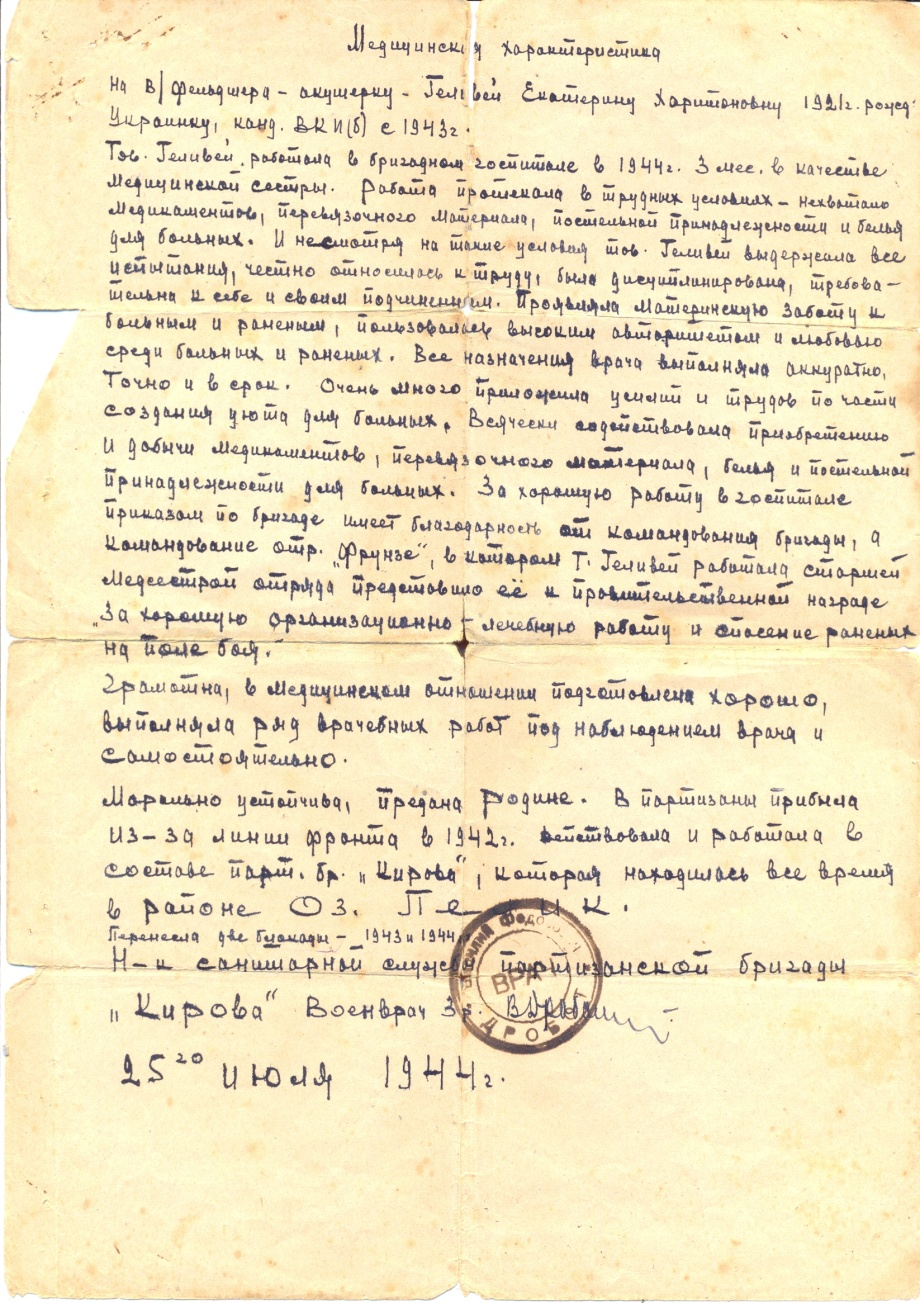 Медицинская характеристика
на в/фельдшера – акушерку – Геливей Екатерину Харитоновну 1921г. рожд.
Украинку, канд. ВКП(б) с 1943г.
Тов. Геливей работала в бригадном госпитале в 1944г. 3 мес. в качестве
Медицинской сестры. Работа протекала в трудных условиях – нехватало
Медикаментов, перевязочного материала, постельной принадлежности и белья
для больных. И несмотря на такие условия тов. Геливей выдержала все
испытания, честно относилась к труду, была дисциплинирована, требова–
тельна к себе и своим подчиненным. Проявляла Материнскую заботу к
больным и раненым, пользовалась высоким авторитетом и любовью
среди больных и раненых. Все назначения врача выполняла аккуратно,
точно и в срок. Очень много приложила усилий и трудов по части
создания уюта для больных. Всячески содействовала приобретению
и добычи медикаментов, перевязочного материала, белья и постельной
принадлежности для больных. За хорошую работу в госпитале
приказом по бригаде имеет благодарность от командования бригады, а
командование отр. „Фрунзе“, в котором Т. Геливей работала старшей
Медсестрой отряда представило её к правительственной награде
„За хорошую организационно – лечебную работу и спасение раненых
на поле боя.“
Грамотна, в Медицинском отношении подготовлена хорошо,
выполняла ряд врачебных работ под наблюдением врача и
самостоятельно.
Морально устойчива, предана Родине. В партизаны прибыла
из–за линии фронта в 1942г. действовала и работала в
составе парт. бр. „Кирова“, которая находилась все время
в районе Оз. Пелик.
Перенесла две блокады – 1943 и 1944
Н–к санитарной службы партизанской бригады
„Кирова“ Военврач 3р.
ВРАЧ
25го июля 1944г.